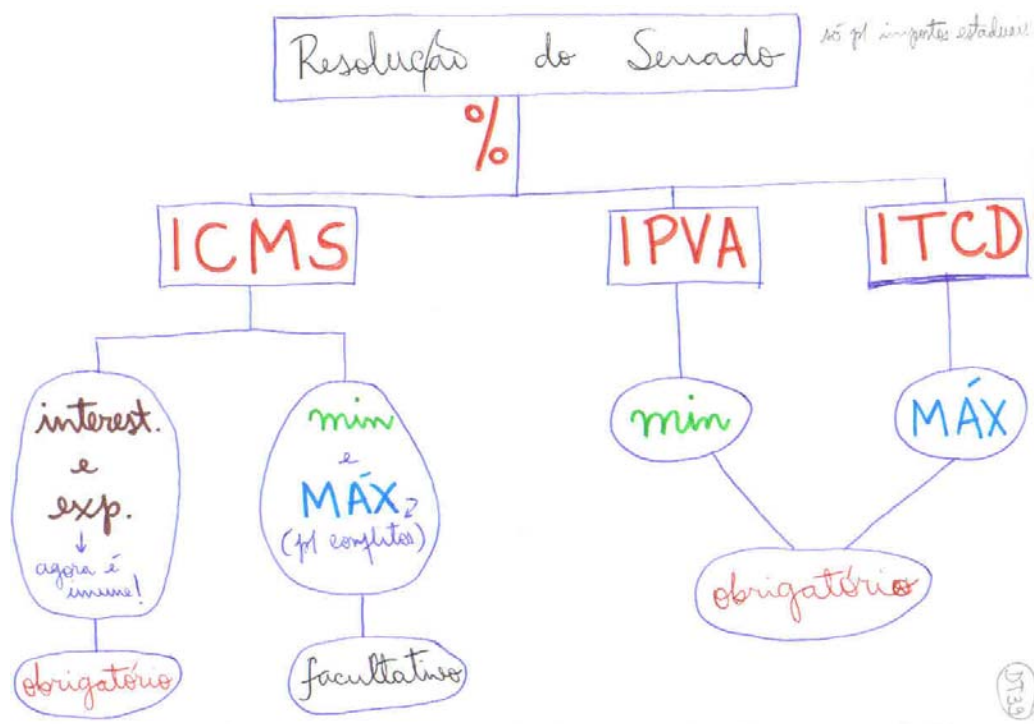 Resolução do Senado
só p/ impostos estaduais!
%
ICMS
IPVA
ITCD
interest.
e
exp.
↓
agora é
imune!
min
e
MÁX
(p/ conflitos)
min
MÁX
obrigatório
obrigatório
facultativo
DT39